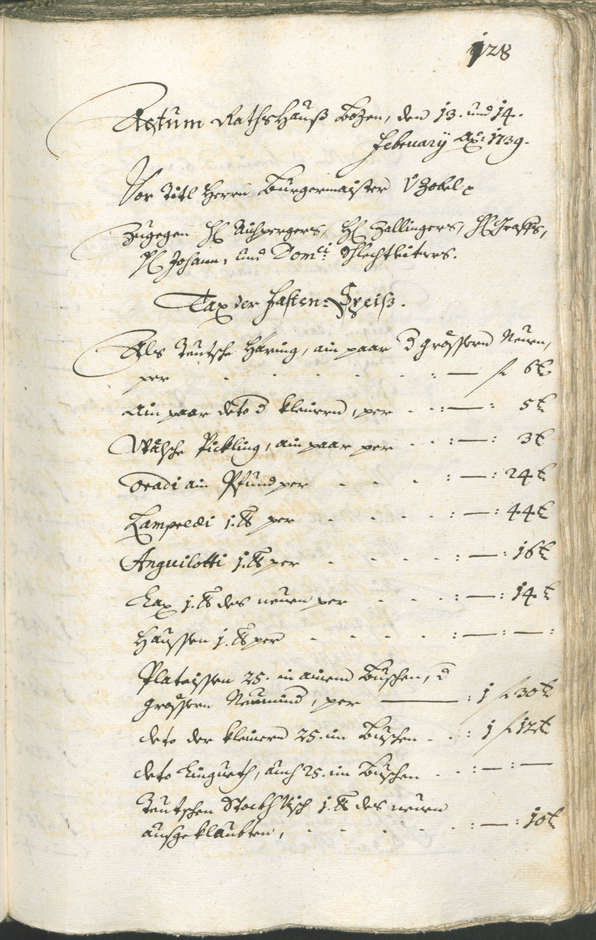 128
Actum RathsHauß Bozen, den 13. und 14.
February Ao: 1739.
Vor Titl Herrn Burgermaister v Zobel p
Zugegen H: Aichpergers, H: Zallingers, H: Graffs,
H: Johann: und Domci: Schlechtleitners.
Tax der Fasten-Speiß.
Als Teutsche Häring, ain paar d grössern Neuen,
per . . . . . : — f 6 k
Ain paar deto d kleinern, per . . : — : 5 k
Wälsche Pickling, ain paar per . . : — : 3 k
Oradi ain Pfund per . . . : — : 24 k
Lampredi 1. lb per . . . : — : 44 k
Anguilotti 1. lb per . . . . : — : 16 k
Lax 1. lb des neuen per . . . : — : 14 k
Haussen 1. lb per . . . . : — : — :
Plateissen 25. in ainem Buschen, d
grössern Neuen und, per — : 1 f 30 k
deto der kleinern 25. im Buschen . . : 1 f 12 k
deto Lingueth, auch 25. im Buschen . . : — : —
Teutschen Stockhfisch 1. lb des neuen
ausgeklaubten, . . . . . : — : 10 k